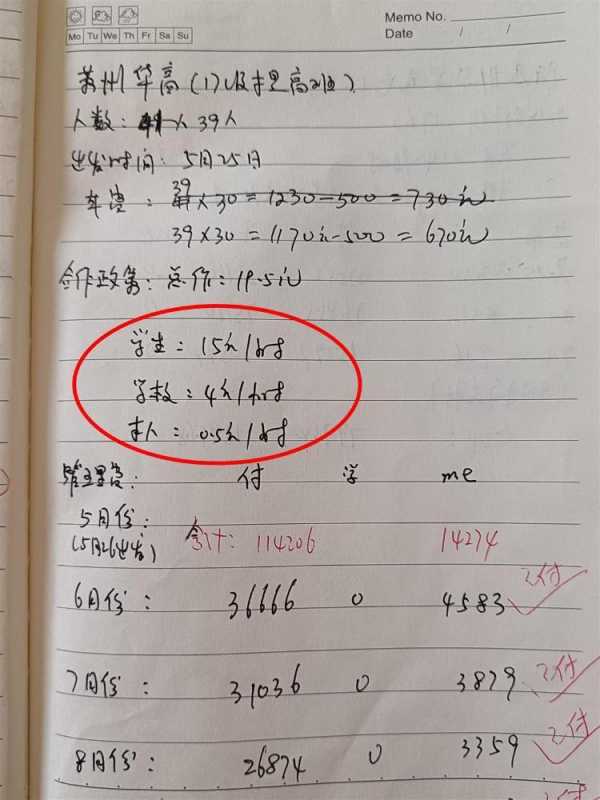 Memo No.
Mo Tu We Th Fr Sa Su
Date / /
苏州华高（17级托里高班）
人数：41人 39人
出发时间：5月25日
车费：41 39×30=1230-500=730元
39×30=1170元-500=670元
合作政策：总价：19.5元
学生：15元/小时
学校：4元/小时
本人：0.5元/小时
管理费： 付 学 me
5月份：
(5月26出发) 合计：114206 14274
6月份： 36666 0 4583 已付
7月份： 31036 0 3879 已付
8月份： 26874 0 3359 已付